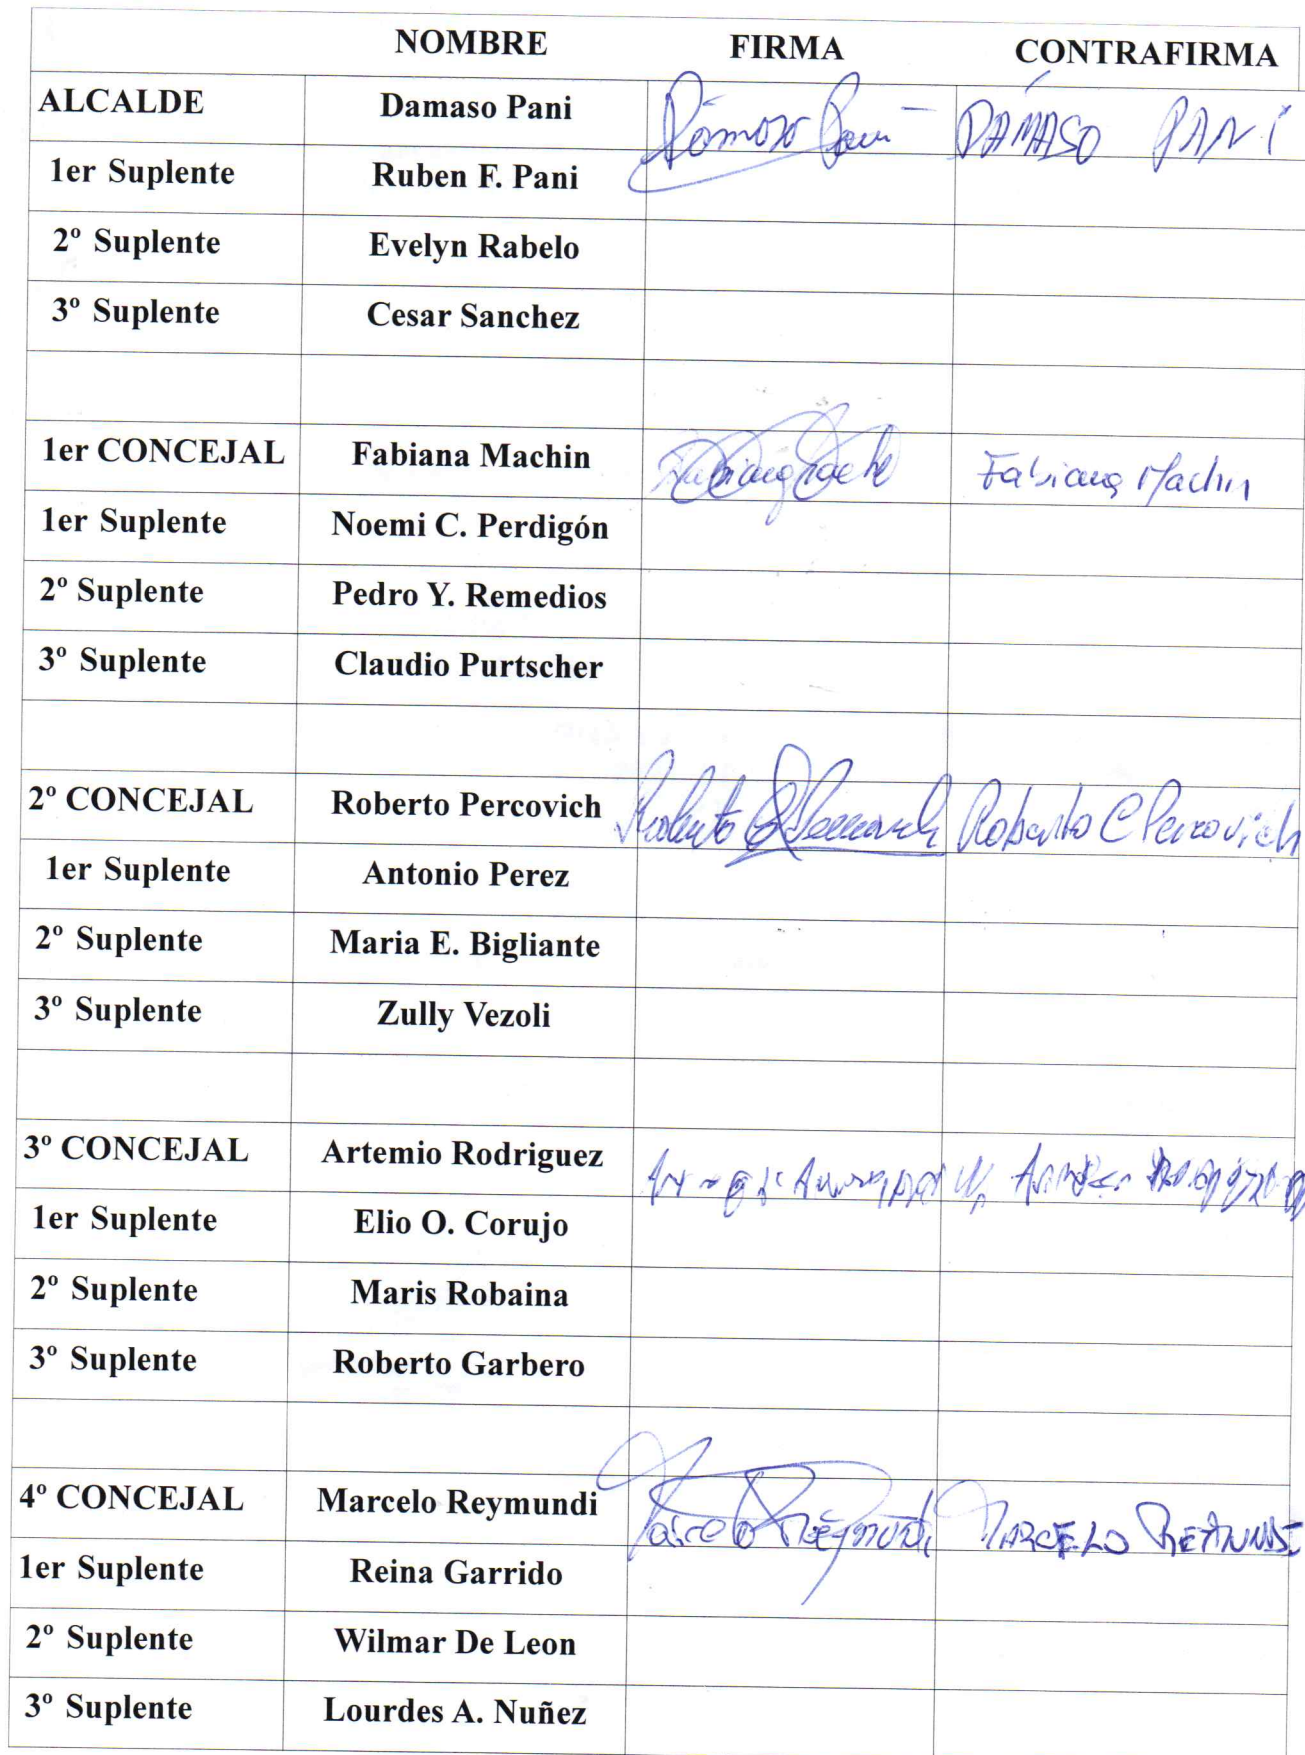 NOMBRE FIRMA CONTRAFIRMA
ALCALDE Damaso Pani Dámaso Pani DÁMASO PANI
1er Suplente Ruben F. Pani
2º Suplente Evelyn Rabelo
3º Suplente Cesar Sanchez
1er CONCEJAL Fabiana Machin Fabiana Machin
1er Suplente Noemi C. Perdigón
2º Suplente Pedro Y. Remedios
3º Suplente Claudio Purtscher
2º CONCEJAL Roberto Percovich Roberto C Percovich Roberto C Percovich
1er Suplente Antonio Perez
2º Suplente Maria E. Bigliante
3º Suplente Zully Vezoli
3º CONCEJAL Artemio Rodriguez
1er Suplente Elio O. Corujo
2º Suplente Maris Robaina
3º Suplente Roberto Garbero
4º CONCEJAL Marcelo Reymundi Marcelo Reymundi MARCELO
1er Suplente Reina Garrido
2º Suplente Wilmar De Leon
3º Suplente Lourdes A. Nuñez